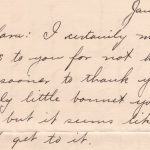 Jan
ara: I certainly m
e to you for not h
sooner to thank y
ly little bonnet yo
but it seems lik
t get to it.